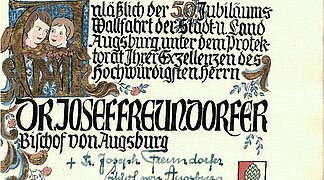 Anläßlich der 50. Jubiläums
Wallfahrt der Stadt u. Land
Augsburg unter dem Protek-
torat Ihrer Exzellenzen des
Hochwürdigsten Herrn
DR. JOSEF FREUNDORFER
Bischof von Augsburg
+ Dr. Joseph Freundorfer
Bischof von Augsburg